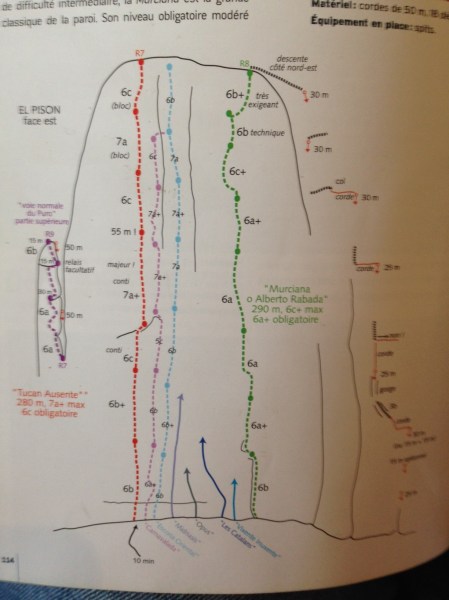 de difficulté intermédiaire, la Murciana est la grande
classique de la paroi. Son niveau obligatoire modéré
Matériel: cordes de 50 m, 18
Équipement en place: spits.
R7
R8
descente
côté nord-est
6c
(bloc)
6b
6b+
très
exigeant
30 m
EL PISON
face est
7a
(bloc)
6c
7a
6b technique
30 m
6c+
6c
7a+
7a+
6a+
col
corde
30 m
"voie normale
du Purc"
(partie supérieure)
R9
15 m
50 m
6b
15 m
relais
facultatif
55 m !
majeur !
conti
7a+
7a
7a+
6a+
corde
25 m
30 m
6a
50 m
6a
R7
6a
"Murciana
o Alberto Rabada"
290 m, 6c+ max
6a+ obligatoire
conti
6c
5c
6b
6a
corde
25 m
"Tucan Ausente"
280 m, 7a+ max
6c obligatoire
6b+
6b+
6a+
corde
6b
6b
6b
10 min
"Opus"
"Les Catalans"
234